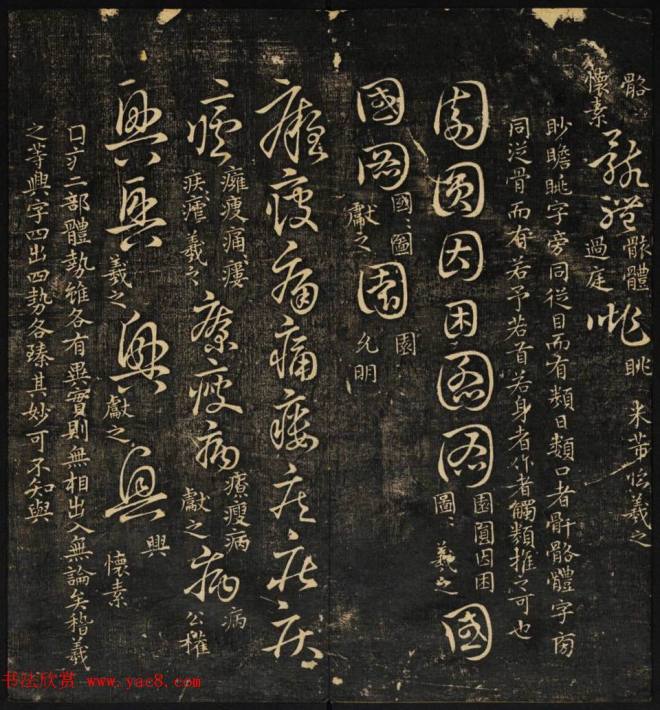 骼
懷素 骸 體 骸體 過庭 眺 眺 米芾臨羲之
眇瞻眺字旁同從目而有類日類口者骭骼體字旁
同從骨而有若予若首若身者作者觸類推之可也
園圓因困圖圖 園圓因困圖〻 羲之 國
國圖 國〻圖 獻之 園 園 允明
癰瘦痛痛瘻
癰瘦痛瘻疾癰 羲之 療瘦病 療瘦病 獻之 病 病 公權
興興 羲之 興 獻之 興 興 懷素
口疒二部體勢雖各有異實則無相出入無論矣稽羲
之等興字四出四勢各臻其妙可不知與
书法欣赏 www.yac8.com